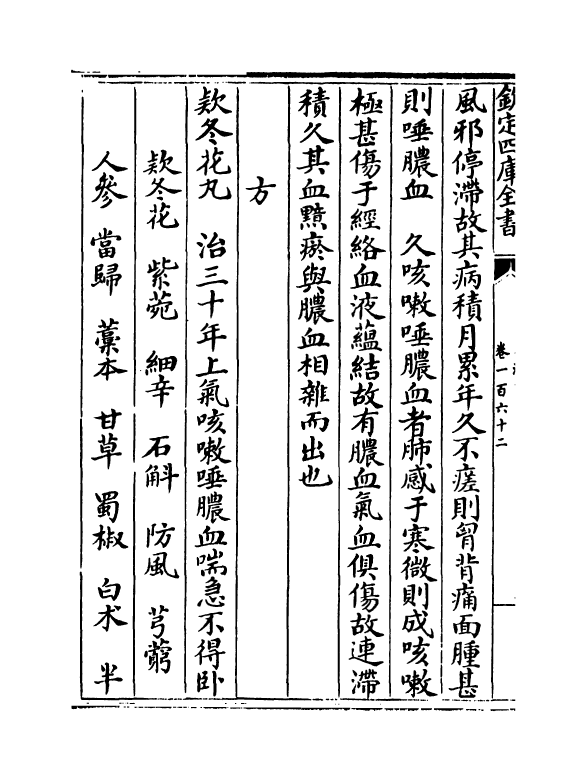 欽定四庫全書
卷一百六十二
風邪停滯故其病積月累年久不瘥則胷背痛面腫甚
則唾膿血　久咳嗽唾膿血者肺感于寒微則成咳嗽
極甚傷于經絡血液蘊結故有膿血氣血俱傷故連滯
積久其血黯瘀與膿血相雜而出也
方
欵冬花丸　治三十年上氣咳嗽唾膿血喘急不得卧
欵冬花　紫菀　細辛　石斛　防風　芎藭
人參　當歸　藁本　甘草　蜀椒　白术　半